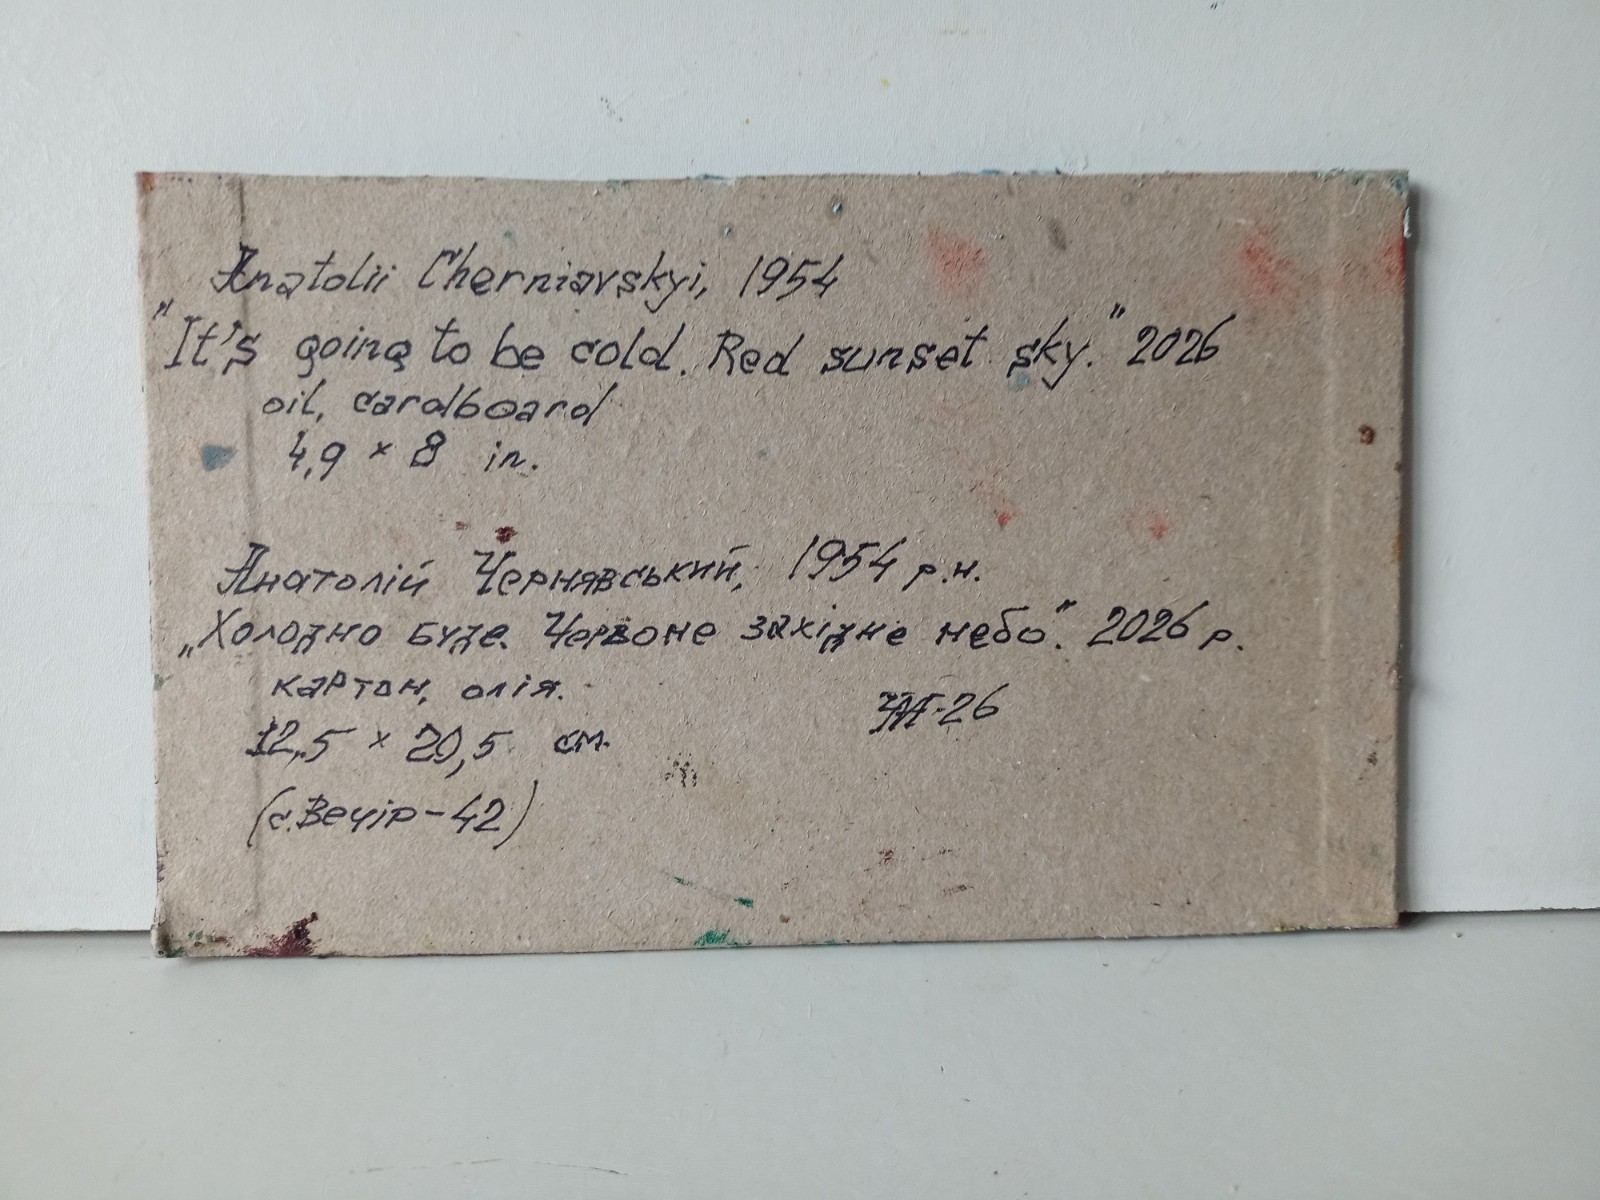 Anatolii Cherniavskyi, 1954
"It's going to be cold. Red sunset sky." 2026
oil, cardboard
4,9 × 8 in.
Анатолій Чернявський, 1954 р.н.
„Холодно буде. Червоне західне небо". 2026 р.
картон, олія.
12,5 × 20,5 см.
(с.Вечір-42)